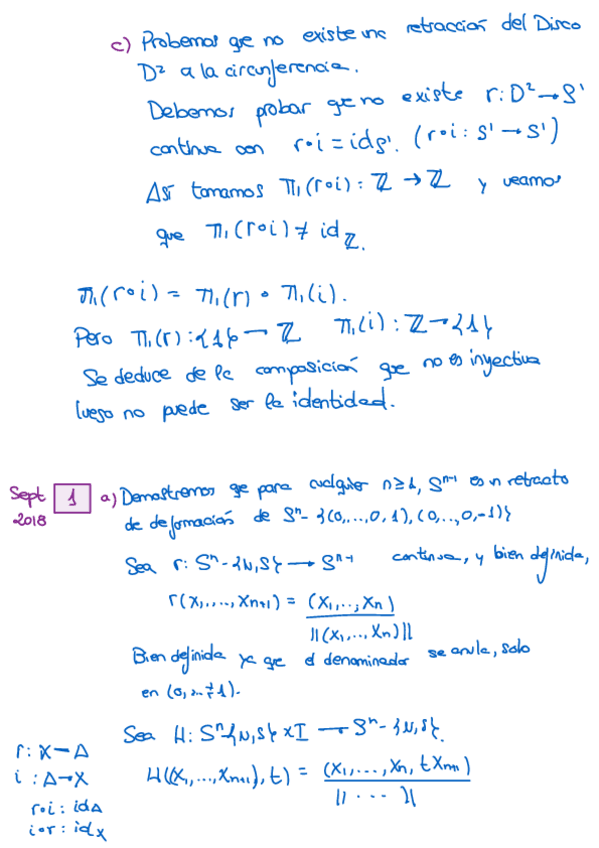 c) Probemos que no existe una retracción del Disco
D² a la circunferencia.
Debemos probar que no existe r: D² → S¹
continua con r∘i = id_S¹. (r∘i : S¹ → S¹)
Así tomamos π₁(r∘i) : ℤ → ℤ y veamos
que π₁(r∘i) ≠ id_ℤ.
π₁(r∘i) = π₁(r) ∘ π₁(i).
Pero π₁(r) : {1} → ℤ π₁(i) : ℤ → {1}
Se deduce de la composición que no es inyectiva
luego no puede ser la identidad.
Sept 2018 1 a) Demostremos que para cualquier n ≥ 1, Sⁿ⁻¹ es un retracto
de deformación de Sⁿ - {(0,...,0,1), (0,...,0,-1)}
Sea r: Sⁿ - {N,S} → Sⁿ⁻¹ continua, y bien definida,
r(x₁,...,xₙ₊₁) = (x₁,...,xₙ) / ||(x₁,...,xₙ)||
Bien definida ya que el denominador se anula, solo
en (0,...,∓1).
Sea H: Sⁿ-{N,S} × I → Sⁿ - {N,S}.
H((x₁,...,xₙ₊₁), t) = (x₁,...,xₙ, t xₙ₊₁) / || ... ||
r: X → A
i : A → X
r∘i : id_A
i∘r : id_X